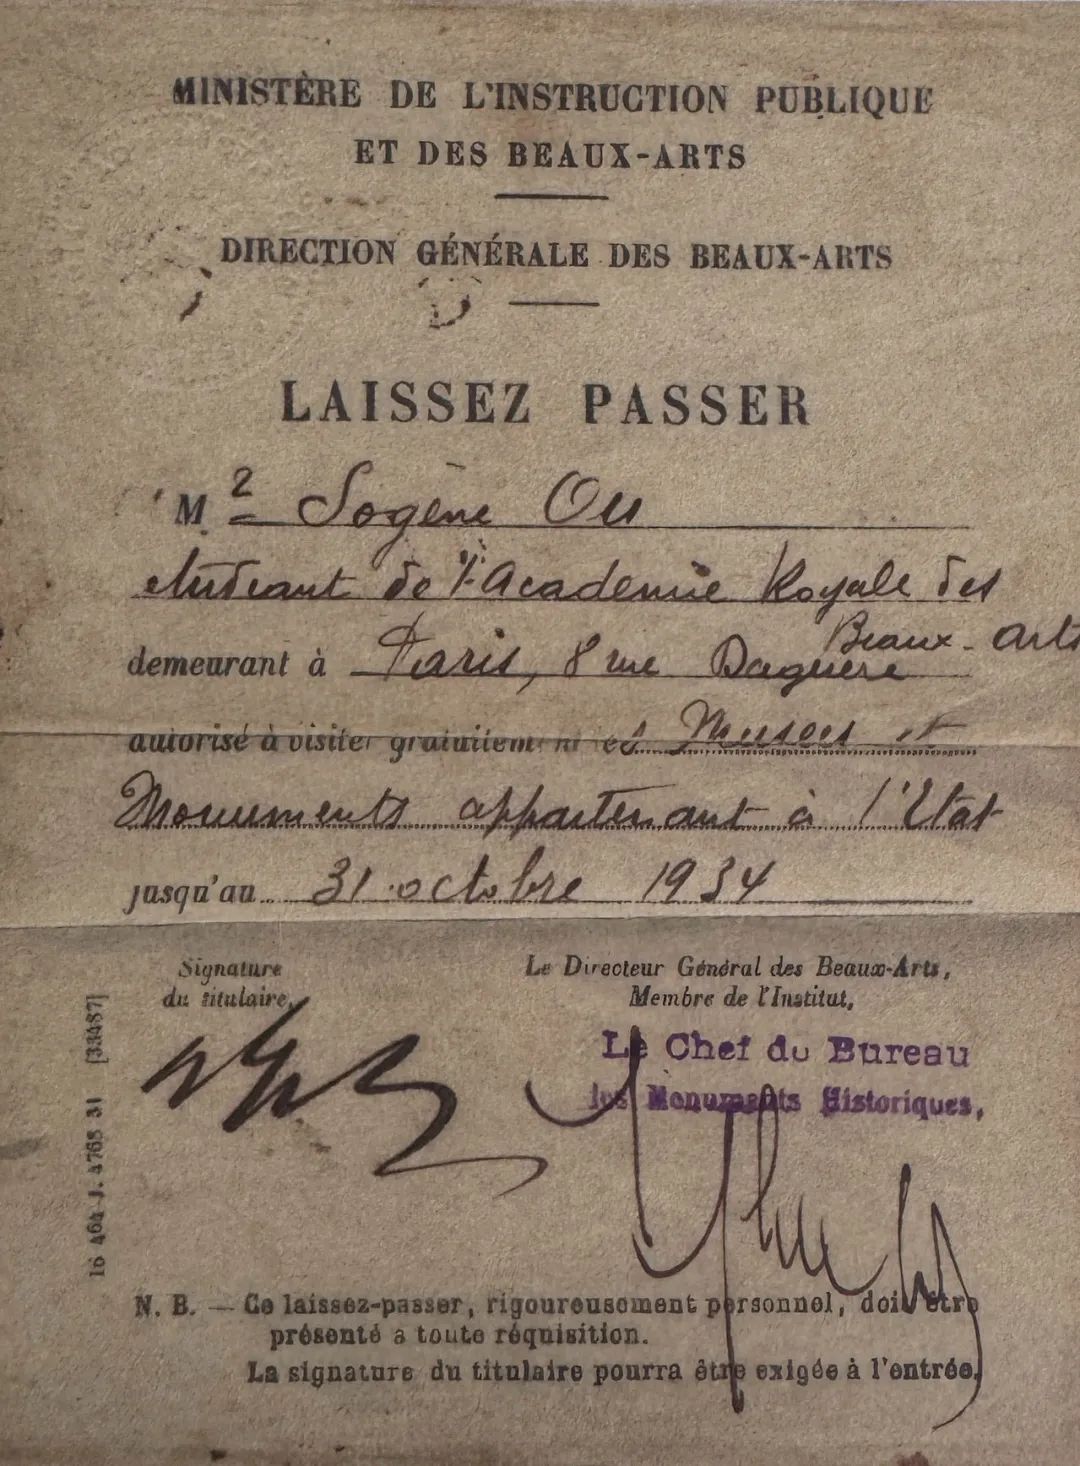 MINISTÈRE DE L'INSTRUCTION PUBLIQUE
ET DES BEAUX-ARTS
DIRECTION GÉNÉRALE DES BEAUX-ARTS
LAISSEZ PASSER
M Sogène Ou
étudiant de l'Academie Royale des
Beaux-Arts
demeurant à Paris, 8 rue Daguère
autorisé à visiter gratuitement les Musées et
Monuments appartenant à l'Etat
jusqu'au 31 octobre 1934
Signature
du titulaire,
Le Directeur Général des Beaux-Arts,
Membre de l'Institut,
Le Chef du Bureau
des Monuments Historiques,
16 464 J. 4765 31 [33487]
N. B. — Ce laissez-passer, rigoureusement personnel, doit être
présenté a toute réquisition.
La signature du titulaire pourra être exigée à l'entrée.